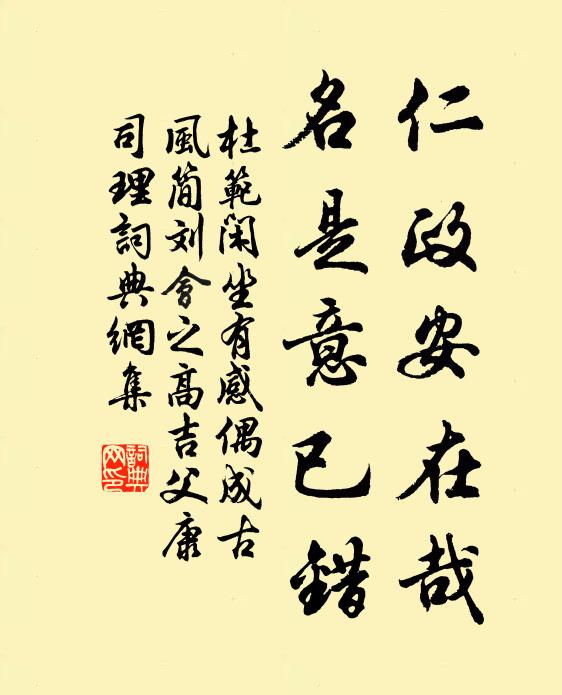 仁政安在哉
名是意已錯
杜範閑坐有感偶成古
風简刘會之高吉父康
司理詞典網集
詞典
网印